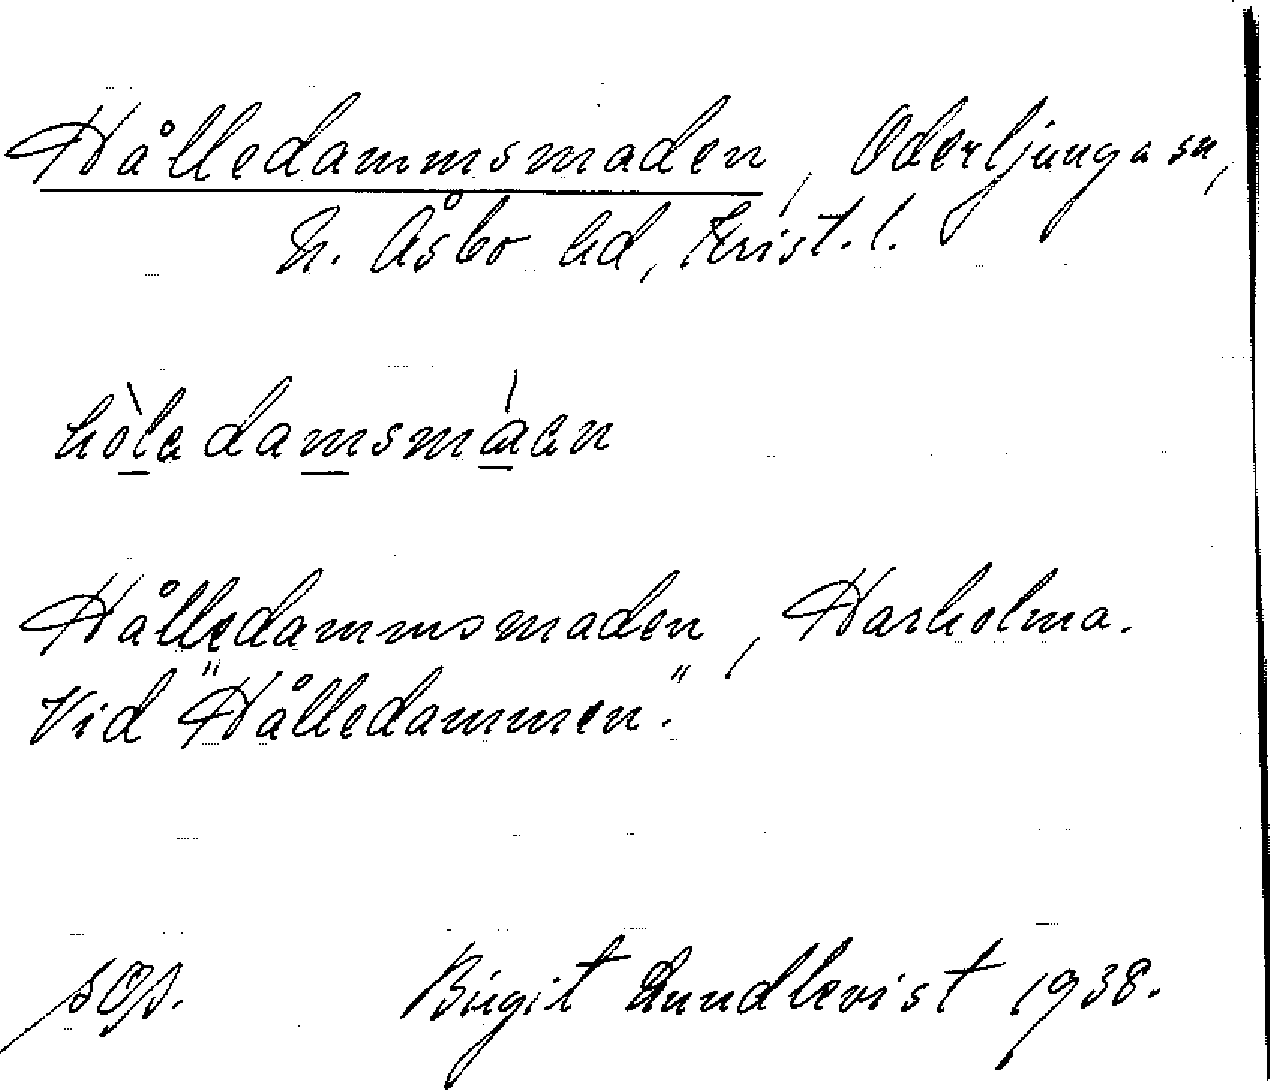 Hålledammsmaden, Oderljunga sn,
N. Åsbo hd, Krist. l.
hòledamsmáen
Hålledammsmaden, Harholma.
Vid "Hålledammen".
Birgit Lundkvist 1938.